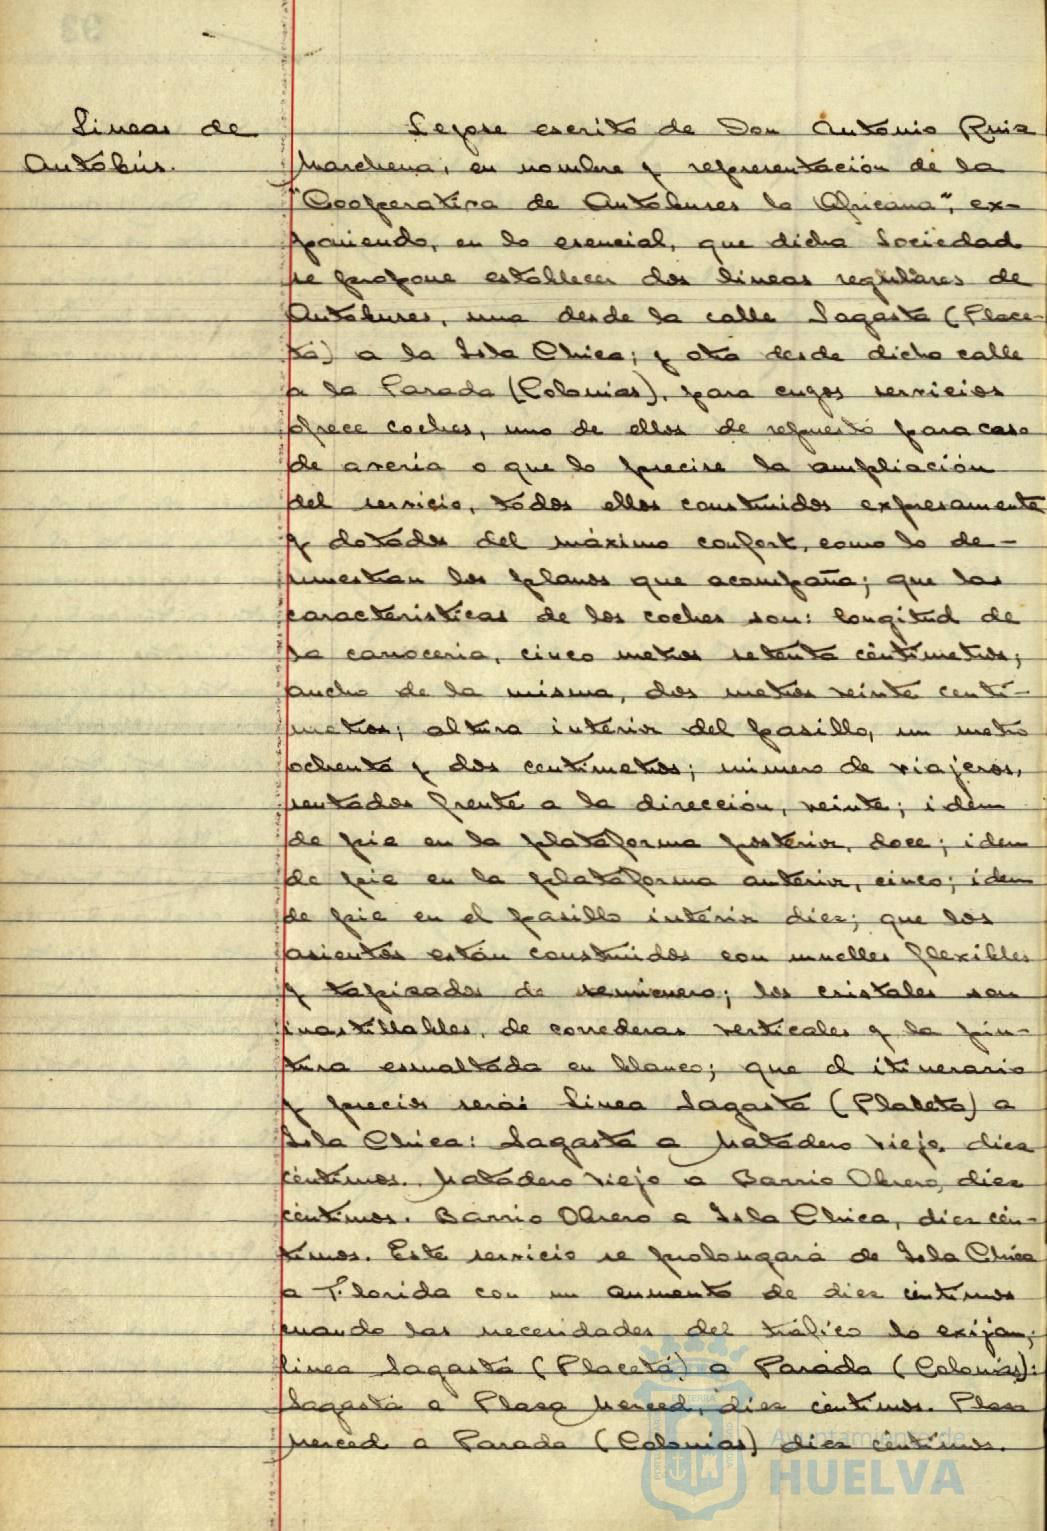 Lineas de
Autobús.
Leyose escrito de Don Antonio Ruiz
Marchena, en nombre y representación de la
"Cooperativa de Autobuses la Africana", ex-
poniendo, en lo esencial, que dicha Sociedad
se propone establecer dos lineas regulares de
Autobuses, una desde la calle Sagasta (Place-
ta) a la Isla Chica; y otra desde dicha calle
a la Parada (Colonias), para cuyos servicios
ofrece coches, uno de ellos de repuesto para caso
de averia o que lo precise la ampliación
del servicio, todos ellos construidos expresamente
y dotados del máximo confort, como lo de-
muestran los planos que acompaña; que las
caracteristicas de los coches son: longitud de
la carroceria, cinco metros setenta céntimetros;
ancho de la misma, dos metros veinte centi-
metros; altura interior del pasillo, un metro
ochenta y dos centimetros; número de viajeros,
sentados frente a la dirección, veinte; idem
de pie en la plataforma posterior, doce; idem
de pie en la plataforma anterior, cinco; idem
de pie en el pasillo interior diez; que los
asientos están construidos con muelles flexibles
y tapizados de semicuero; los cristales son
inastillables, de correderas verticales y la pin-
tura esmaltada en blanco; que el itinerario
y precios será: Linea Sagasta (Placeta) a
Isla Chica: Sagasta a Matadero viejo, diez
céntimos. Matadero viejo a Barrio Obrero, diez
céntimos. Barrio Obrero a Isla Chica, diez cén-
timos. Este servicio se prolongará de Isla Chica
a Florida con un aumento de diez céntimos
cuando las necesidades del tráfico lo exijan;
linea Sagasta (Placeta) a Parada (Colonias):
Sagasta a Plaza Merced, diez céntimos. Plaza
Merced a Parada (Colonias) diez céntimos.
Ayuntamiento de
HUELVA